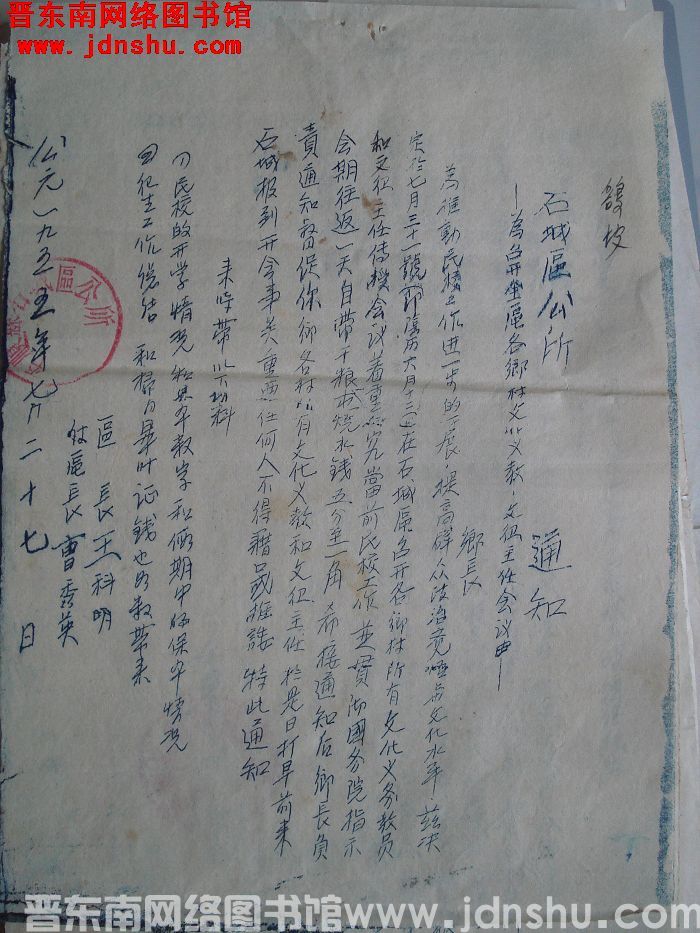 晋东南网络图书馆
www.jdnshu.com
鸽坡
石城區公所 通知
—为召开全區各鄉村文化义教,文征主任会议由—
鄉長
为推動民校工作进一步的开展,提高群众政治觉悟与文化水平,兹决
定於七月三十一號即旧历六月十三在石城區召开各鄉村所有文化义务教员
和文征主任传授会议着重研究當前民校工作並貫彻國务院指示
会期往返一天自带干粮或烧水钱五分至一角 希接通知后鄉長負
責通知督促你鄉各村所有文化义教和文征主任於是日打早前来
石城报到开会事关重要任何人不得藉口或推諉 特此通知
来時带以下材料
(1)民校的开学情况 和半数字和假期中的保平情况
(2)征生工作总结 和扫盲毕业证钱也如数带来
區 長王科明
付區長曹秀英
公元一九五五年七月二十七日
晋东南网络图书馆www.jdnshu.com